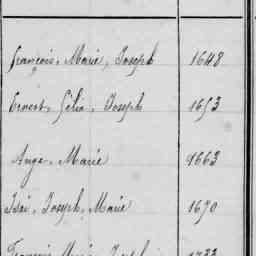 François, Marie, Joseph 1648
Ernest, Félix, Joseph 1653
Ange, Marie 1663
Isaï, Joseph, Marie 1670
François, Marie, Joseph 1733